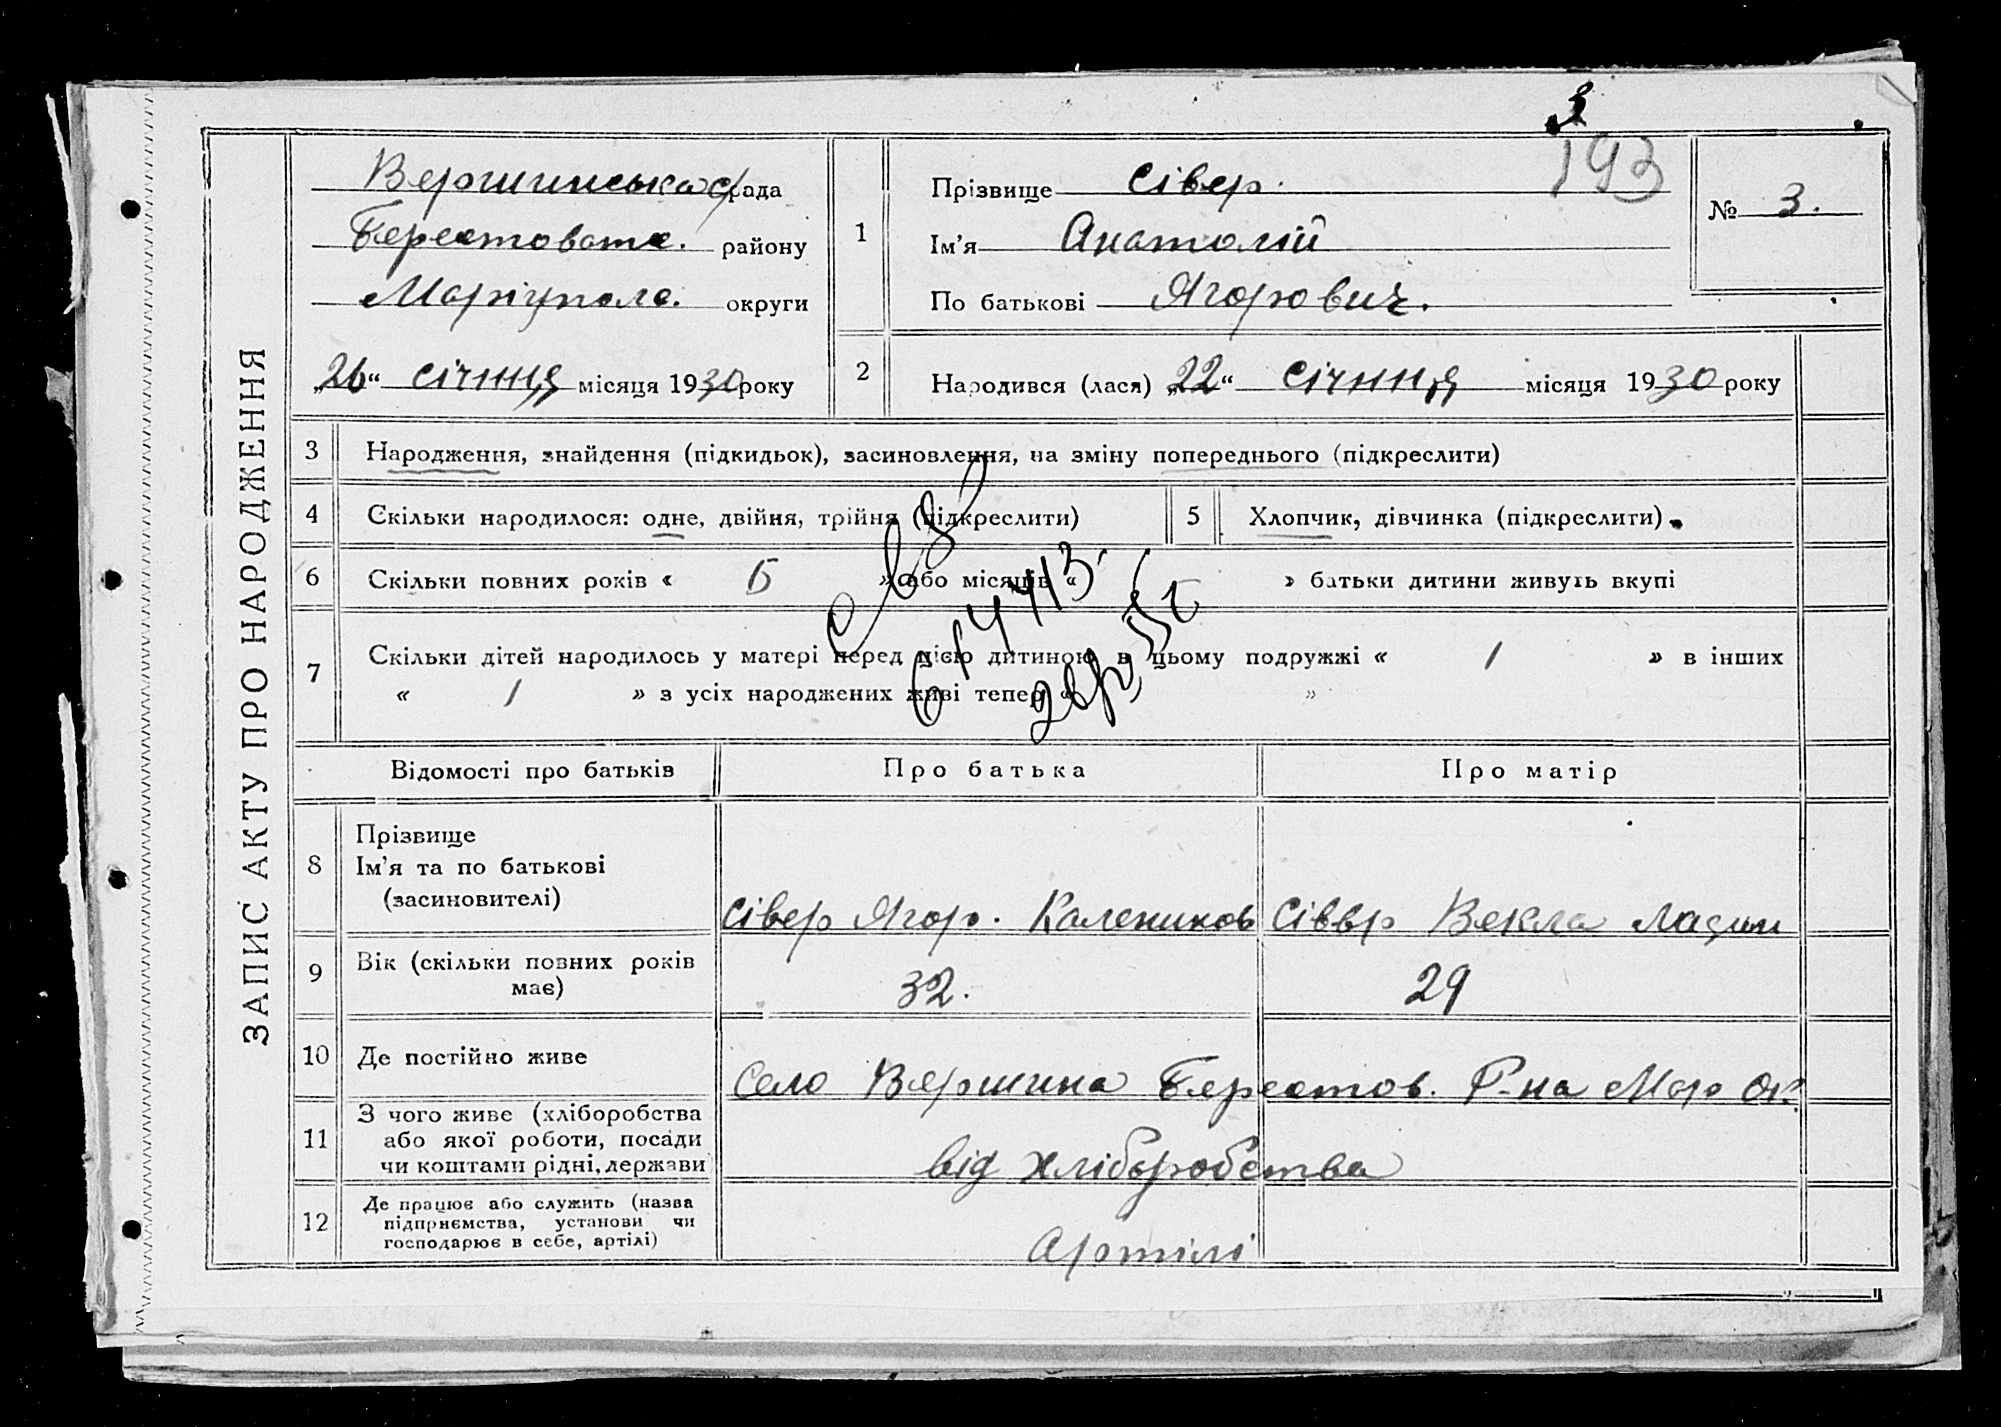 3
193
ЗАПИС АКТУ ПРО НАРОДЖЕННЯ
Вершинська с/рада
Берестоватс. району
Маріупольс. округи
„26“ січння місяця 1930 року
1
Прізвище Сівер.
Ім’я Анатолій
По батькові Ягорович.
№ 3.
2
Народився (лася) „22“ січння місяця 1930 року
3 Народження, знайдення (підкидьок), засиновлення, на зміну попереднього (підкреслити)
4 Скільки народилося: одне, двійня, трійня (підкреслити)
5 Хлопчик, дівчинка (підкреслити)
6 Скільки повних років « 5 » або місяців « » батьки дитини живуть вкупі
7 Скільки дітей народилось у матері перед цією дитиною в цьому подружжі « 1 » в інших
« 1 » з усіх народжених живі тепер « »
Відомості про батьків
Про батька
Про матір
8 Прізвище
Ім’я та по батькові
(засиновителі)
Сівер Ягор. Калеников
Сіввр Векла
9 Вік (скільки повних років
має)
32.
29
10 Де постійно живе
Село Вяршина Берестов. Р-на Мар Ок.
11 З чого живе (хліборобства
або якої роботи, посади
чи коштами рідні, держави
від хліборобства
12 Де працює або служить (назва
підприємства, установи чи
господарює в себе, артілі)
Артілі